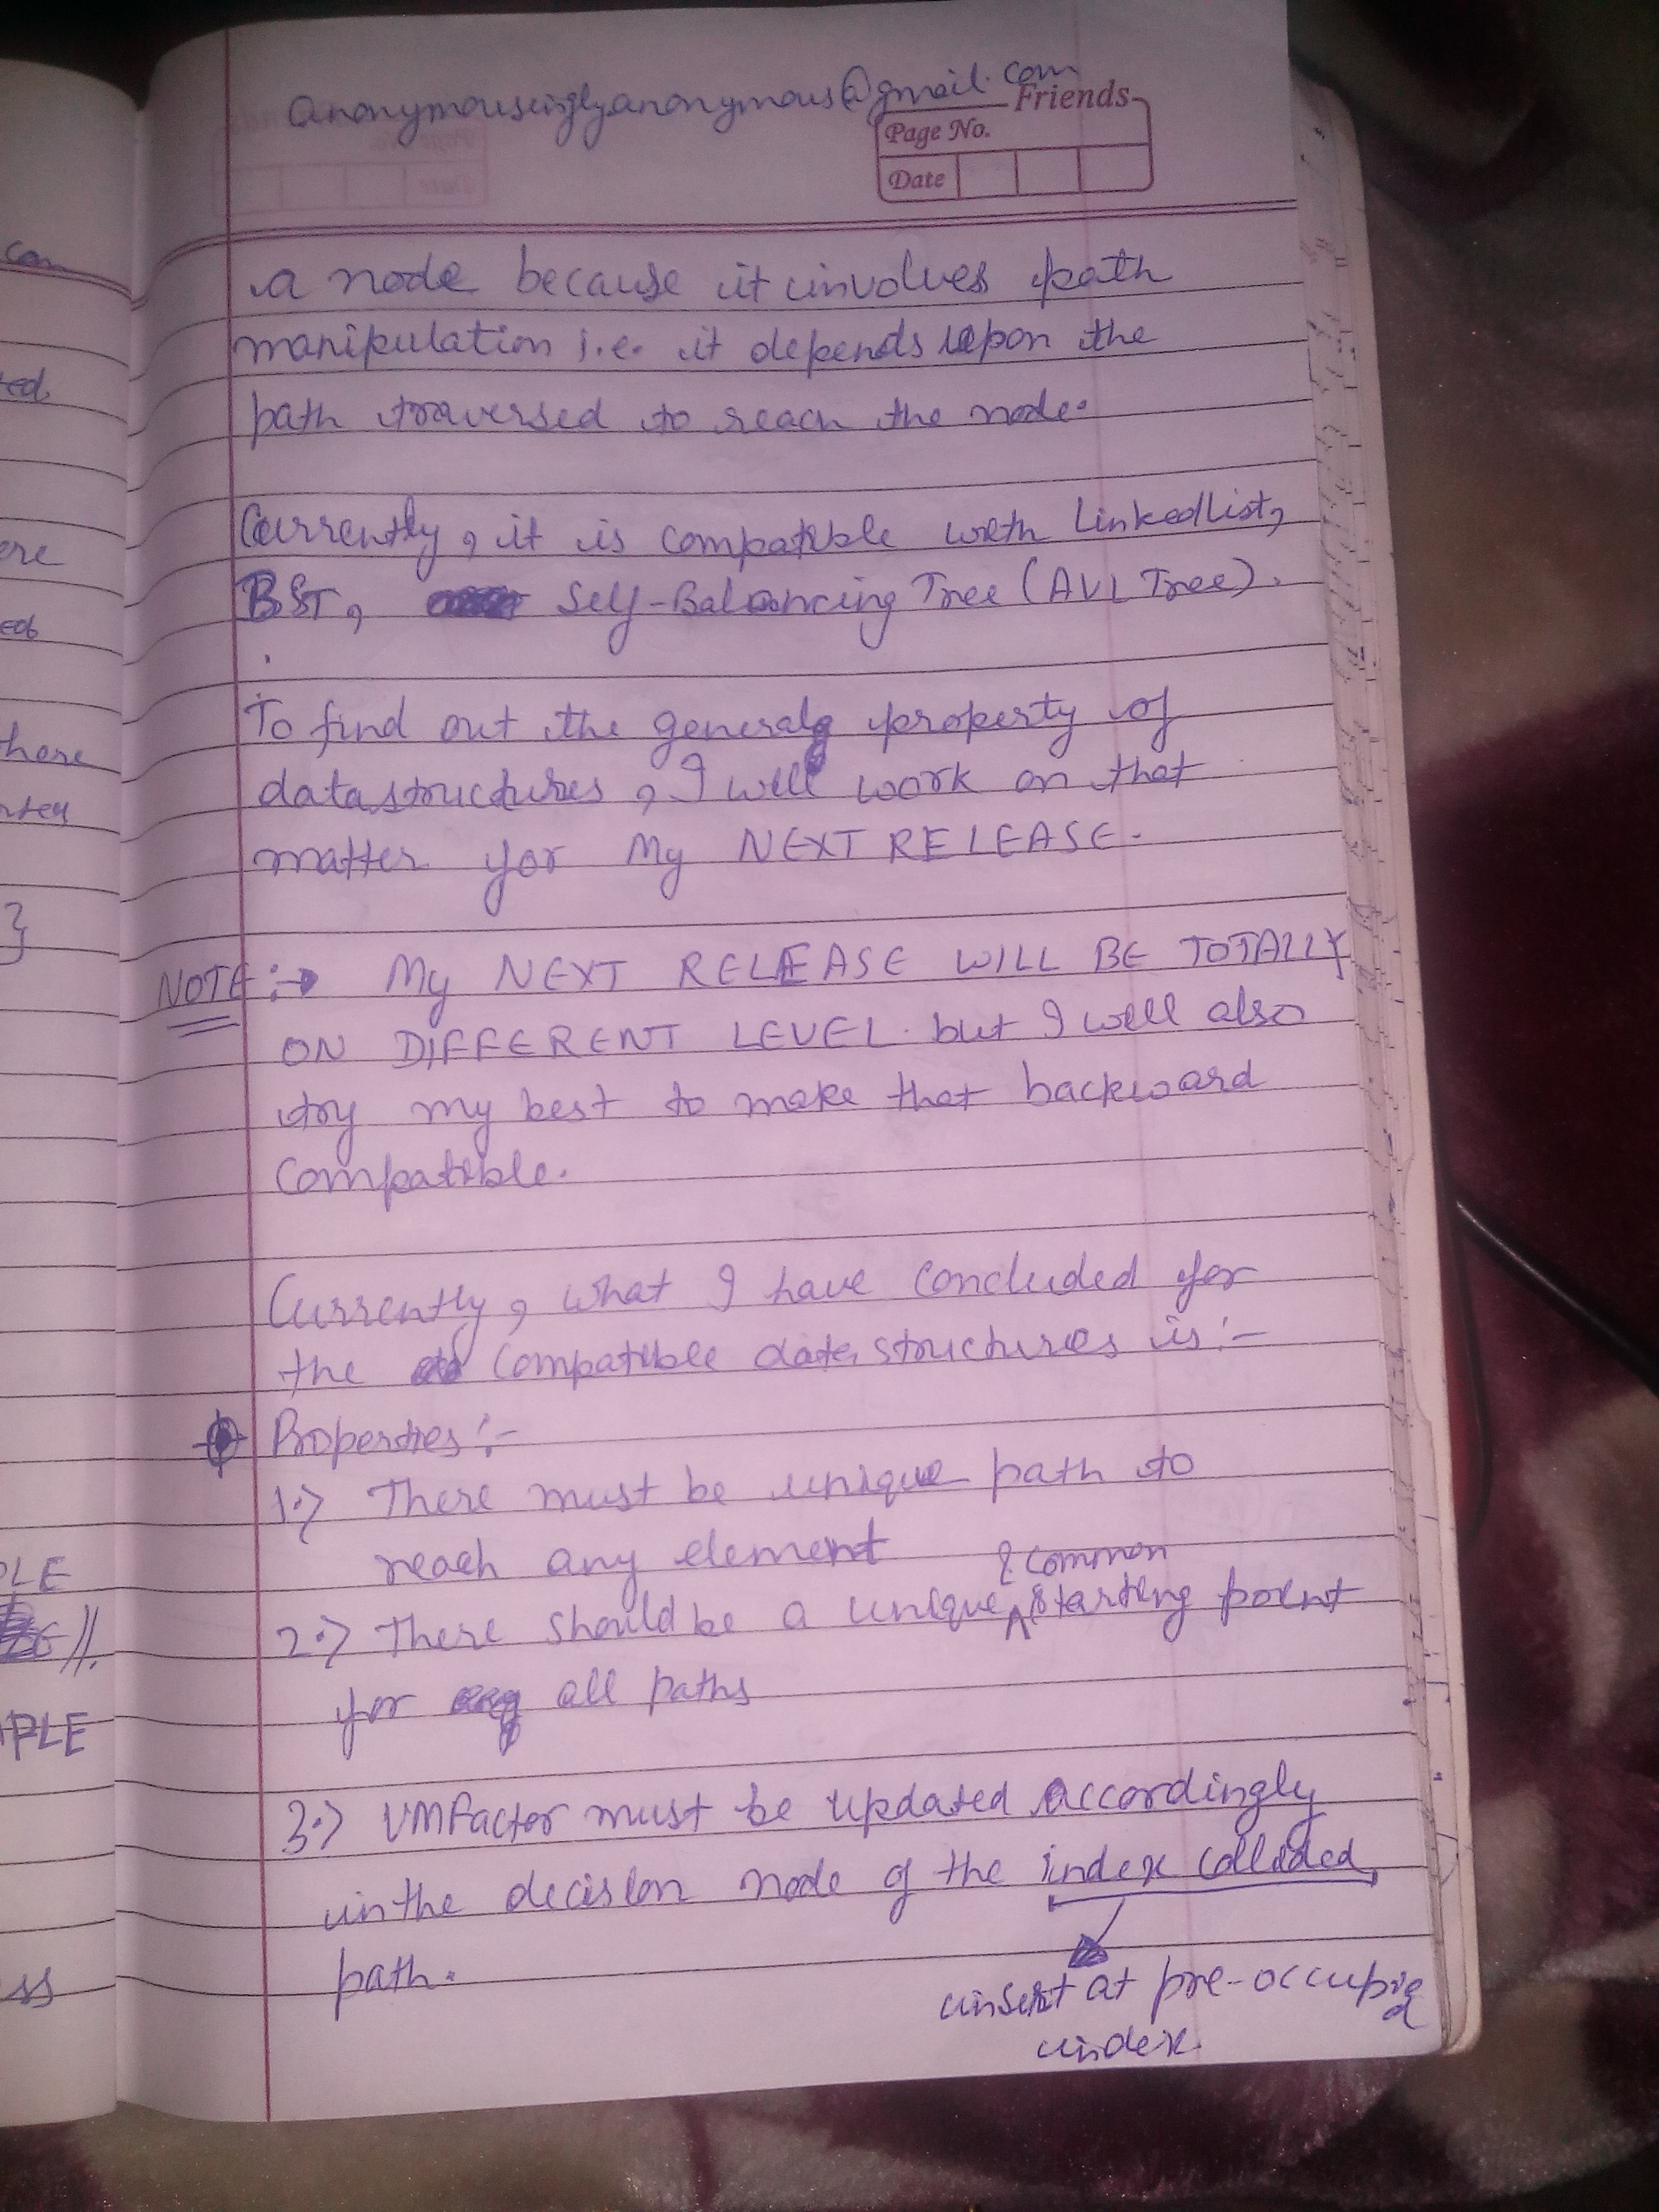 anonymousinglyanonymous@gmail.com
Friends
Page No.
Date
a node because it involves path
manipulation i.e. it depends upon the
path traversed to reach the node.
Currently, it is compatible with LinkedList,
BST, Self-Balancing Tree (AVL Tree).
To find out the general property of
datastructures, I will work on that
matter for My NEXT RELEASE.
NOTE :→ My NEXT RELEASE WILL BE TOTALLY
ON DIFFERENT LEVEL but I will also
try my best to make that backward
compatible.
Currently, what I have concluded for
the compatible datastructures is :-
Properties :-
1.) There must be unique path to
reach any element
2.) There should be a unique & common starting point
for all paths
3.) VMFactor must be updated accordingly
in the decision node of the index collided
path.
insert at pre-occupied
index.
com
ted
ere
here
}
PLE
PLE
ss